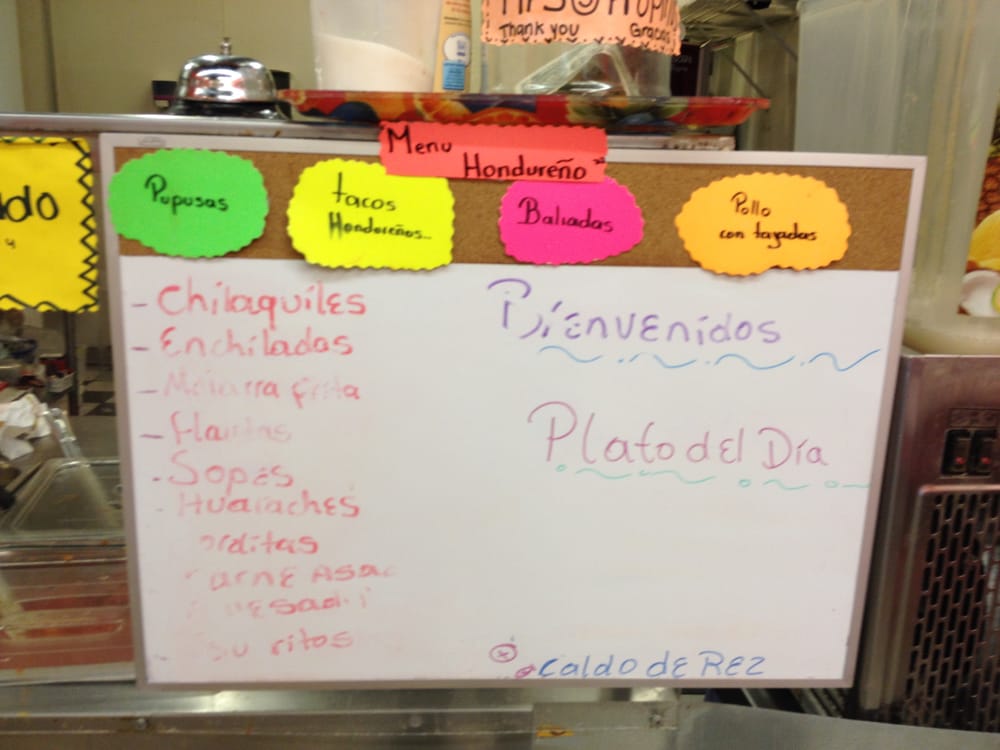 Thank you Gracias
Menu
Hondureño
Pupusas
tacos
Hondureños...
Baliadas
Pollo
con tajadas
- Chilaquiles
- Enchiladas
- Mojarra frita
- flautas
- Sopes
- Huaraches
orditas
arne Asa
uesadi
bu ritos
Bienvenidos
Plato del Día
caldo de Rez